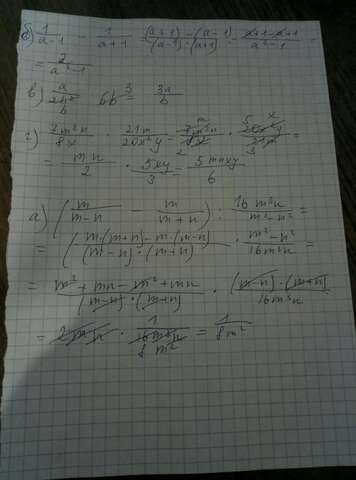 б) 1/(a-1) - 1/(a+1) = ((a+1)-(a-1))/((a-1)·(a+1)) = (a+1-a+1)/(a²-1)
= 2/(a²-1)
в) 6b = 3a/b
г) 7m²n/8x : 21m/20x²y = 7m²n/8x · 20x²y/21m =
= mn/2 · 5xy/3 = 5mnxy/6
а) (m/(m-n) - m/(m+n)) : 16m³n/(m²-n²) =
= (m·(m+n)-m·(m-n))/((m-n)·(m+n)) · (m²-n²)/16m³n =
= (m²+mn-m²+mn)/((m-n)·(m+n)) · ((m-n)·(m+n))/16m³n
= 2mn · 1/16m³n = 1/8m²